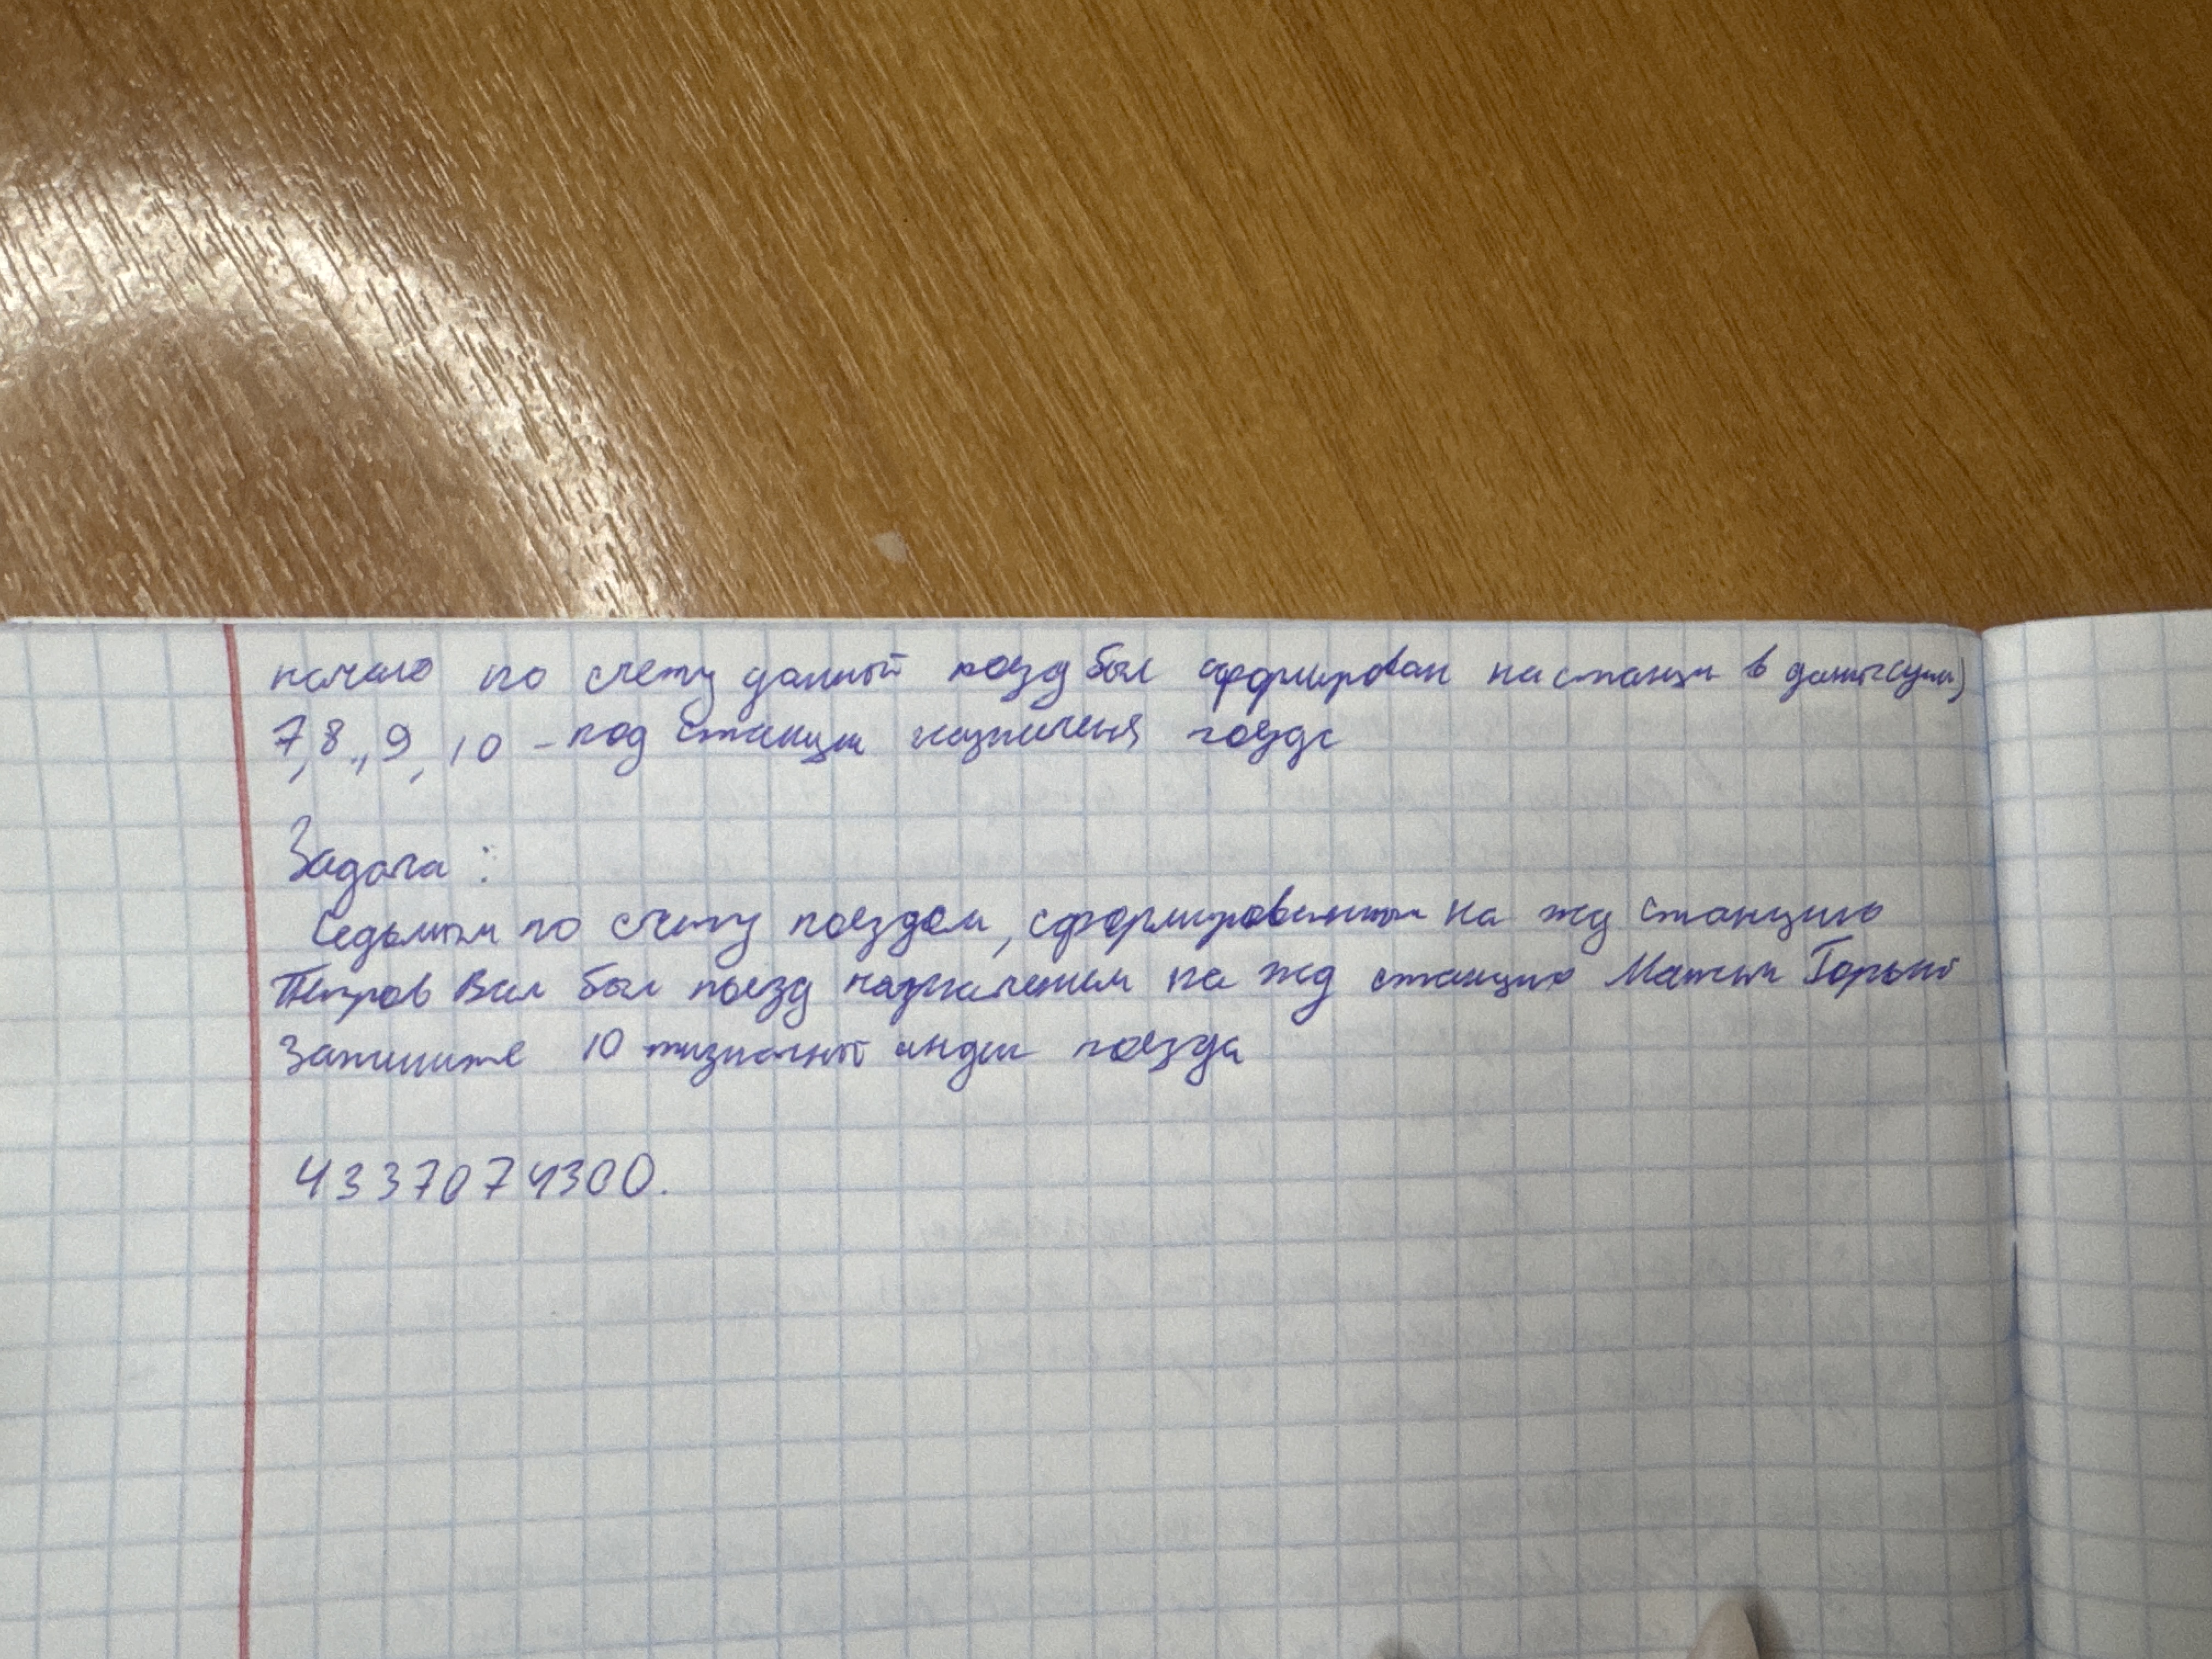 начало по счету данный поезд был сформирован на станции в данные сутки)
7,8,,9,10 - код станции назначения поезда
Задача :
Седьмым по счету поездом, сформированным на жд станцию
Петров Вал был поезд назначением на жд станцию Максим Горький
Запишите 10 тизначный индекс поезда
4337074300.